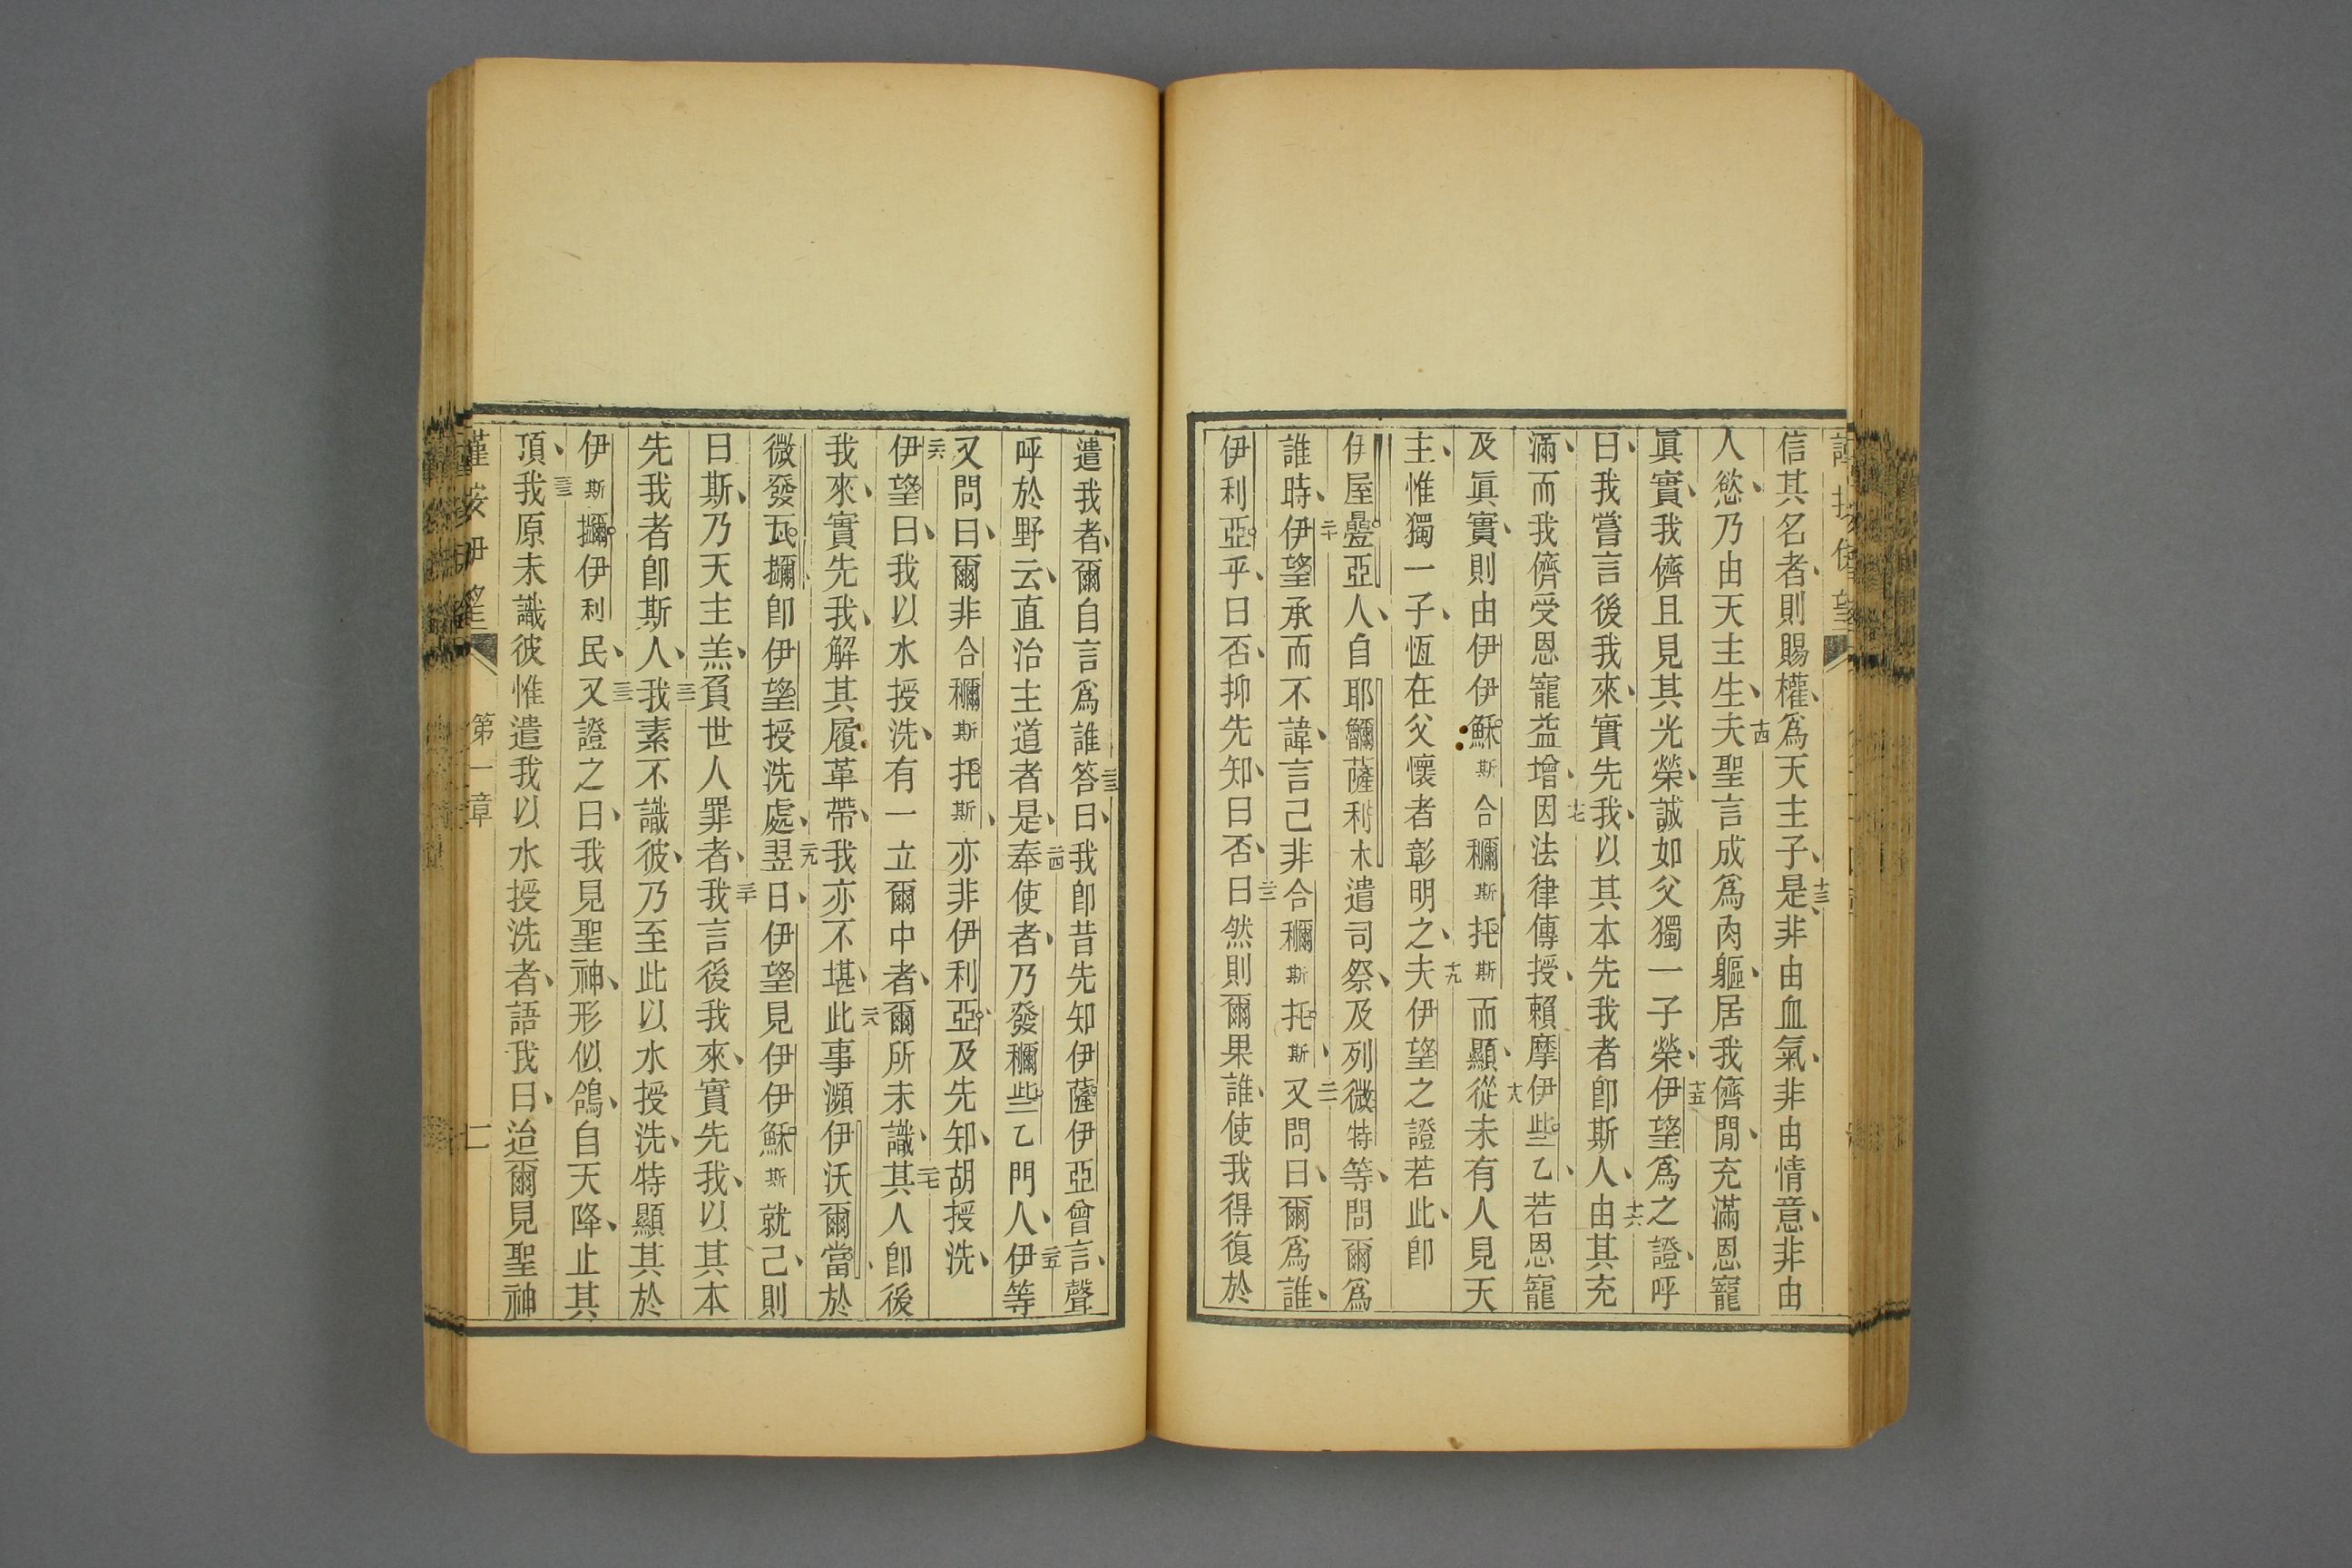 信其名者、則賜權、爲天主子、是十三非由血氣、非由情意、非由
人慾、乃由天主生、夫十四聖言成爲肉軀、居我儕閒、充滿恩寵
眞實、我儕且見其光榮、誠如父獨一子榮、伊十五望爲之證、呼
曰、我嘗言後我來、實先我、以其本先我者卽斯人、由十六其充
滿、而我儕受恩寵益增、因十七法律傳授、賴摩伊些乙、若恩寵
及眞實、則由伊伊穌斯合穪斯托斯而顯、從十八未有人見天
主、惟獨一子、恆在父懷者彰明之、夫十九伊望之證若此、卽
伊屋疊亞人、自耶齈薩利木遣司祭、及列微特等、問爾爲
誰時、伊二十望承而不諱、言己非合穪斯托斯、又二一問曰、爾爲誰、
伊利亞乎、曰否、抑先知、曰否、曰二二然則爾果誰、使我得復於
遣我者、爾自言爲誰、答二三曰、我卽昔先知伊薩伊亞曾言、聲
呼於野云、直治主道者是、奉二四使者、乃發穪些乙門人、伊二五等
又問曰、爾非合穪斯托斯、亦非伊利亞、及先知、胡授洗、
伊二六望曰、我以水授洗、有一立爾中者、爾所未識、其二七人卽後
我來、實先我、解其履革帶、我亦不堪、此二八事瀕伊沃爾當、於
微發瓦擟、卽伊望授洗處、翌二九日、伊望見伊伊穌斯就己、則
曰斯、乃天主羔、負世人罪者、我三十言後我來、實先我、以其本
先我者卽斯人、我三一素不識彼、乃至此以水授洗、特顯其於
伊斯擟伊利民、又三二證之曰、我見聖神、形似鴿、自天降、止其
頂、我三三原未識彼惟遣我以水授洗者、語我曰、迨爾見聖神
第一章
二